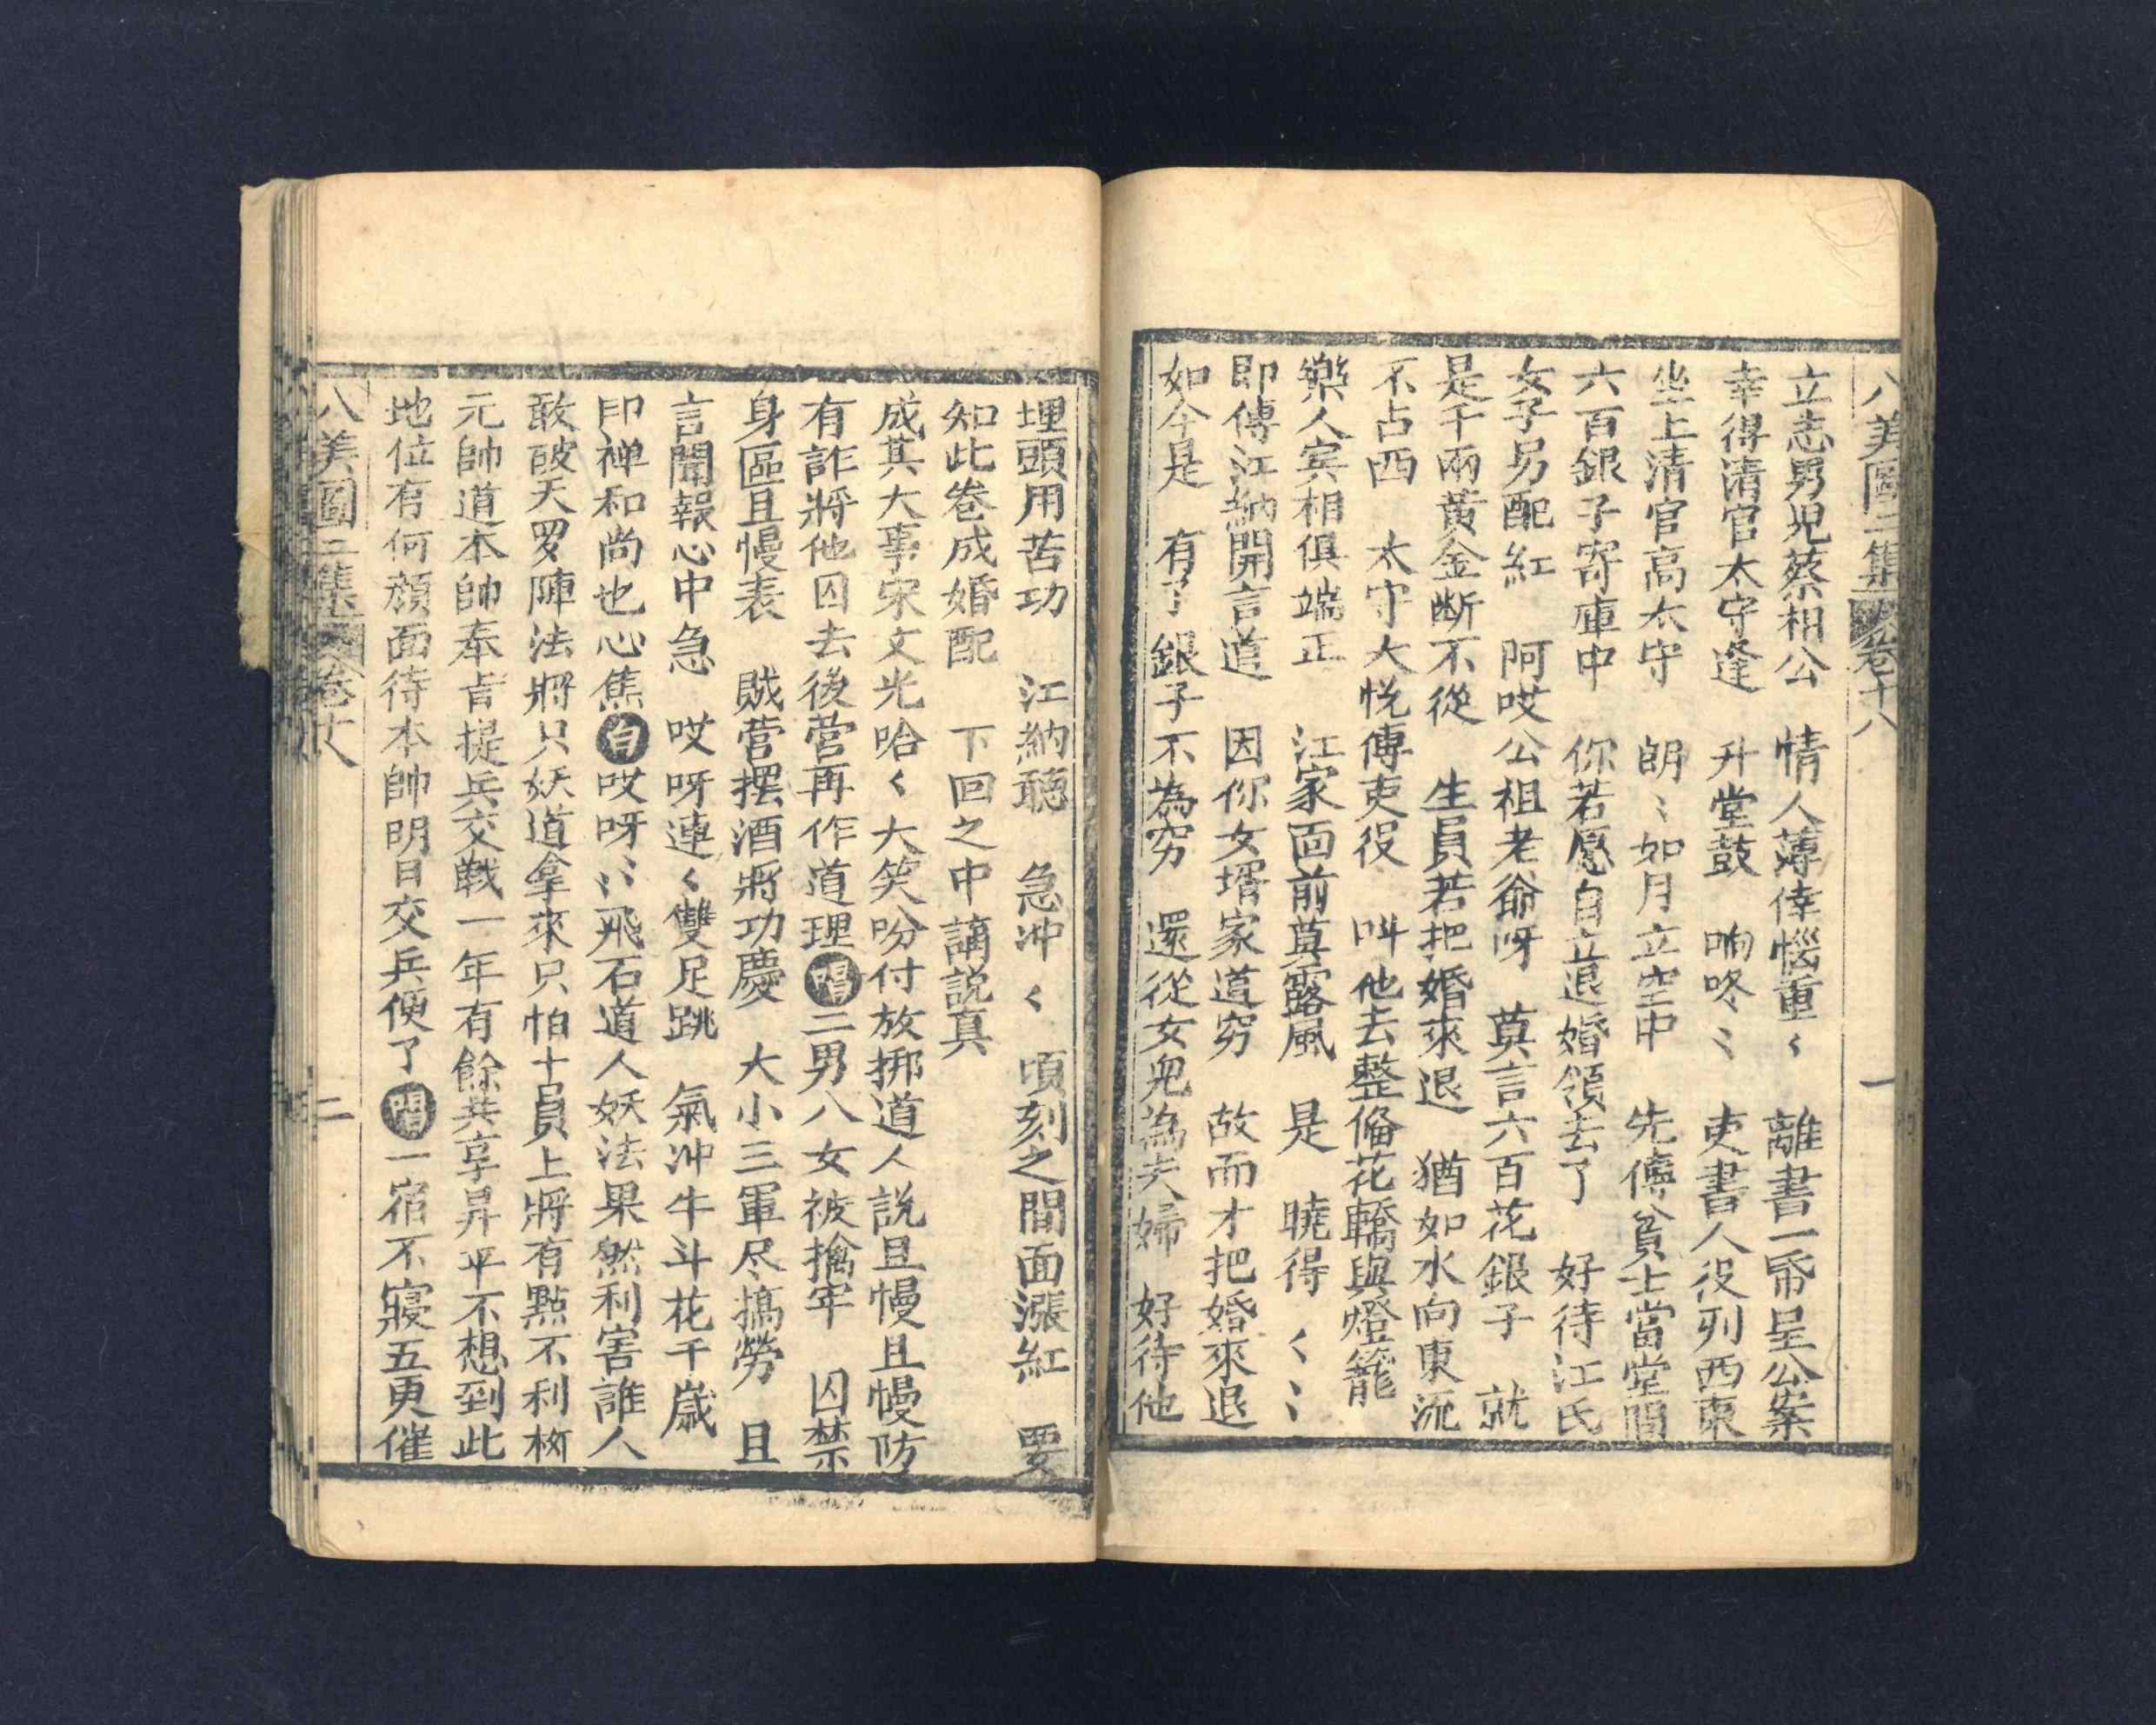 八美圖二集 卷十八 一
立志男兒蔡相公 情人薄倖惱重〱 離書一帋呈公案
幸得清官太守逢 升堂鼓 响咚〻 吏書人役列西東
坐上清官高太守 朗〻如月立空中 先傳貧士當堂問
六百銀子寄庫中 你若愿自立退婚領去了 好待江氏
女子另配紅 阿哎公祖老爺呀 莫言六百花銀子 就
是千兩黃金断不從 生員若把婚來退 猶如水向東流
不占西 太守大悅傳吏役 叫他去整僃花轎與燈籠
樂人賓相俱端正 江家面前莫露風 是 曉得〱〻
即傳江納開言道 因你女壻家道穷 故而才把婚來退
如今是 有了銀子不為穷 還從女兒為夫婦 好待他
埋頭用苦功 江納聽 急冲〱 頃刻之間面漲紅 要
知此卷成婚配 下回之中謪説真
成其大事宋文光哈〱大笑吩付放挷道人説且慢且慢防
有詐將他囚去後营再作道理唱二男八女被擒牢 囚禁
身區且慢表 賊营摆酒將功慶 大小三軍尽搞勞 且
言聞報心中急 哎呀連〱雙足跳 氣冲牛斗花千嵗
印禅和尚也心焦白哎呀〻飛石道人妖法果然利害誰人
敢破天罗陣法將只妖道拿來只怕十員上將有點不利
元帥道本帥奉旨提兵交戰一年有餘共享昇平不想到此
地位有何顔面待本帥明日交兵便了唱一宿不寢五更催
八美圖二集 卷十八 二